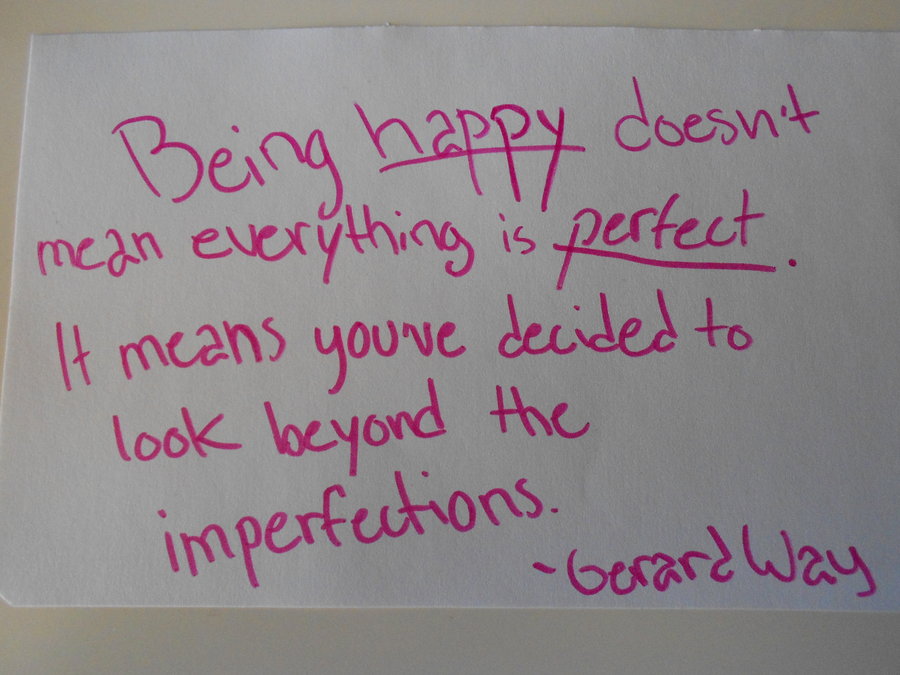 Being happy doesn't
mean everything is perfect.
It means you've decided to
look beyond the
imperfections.
- Gerard Way